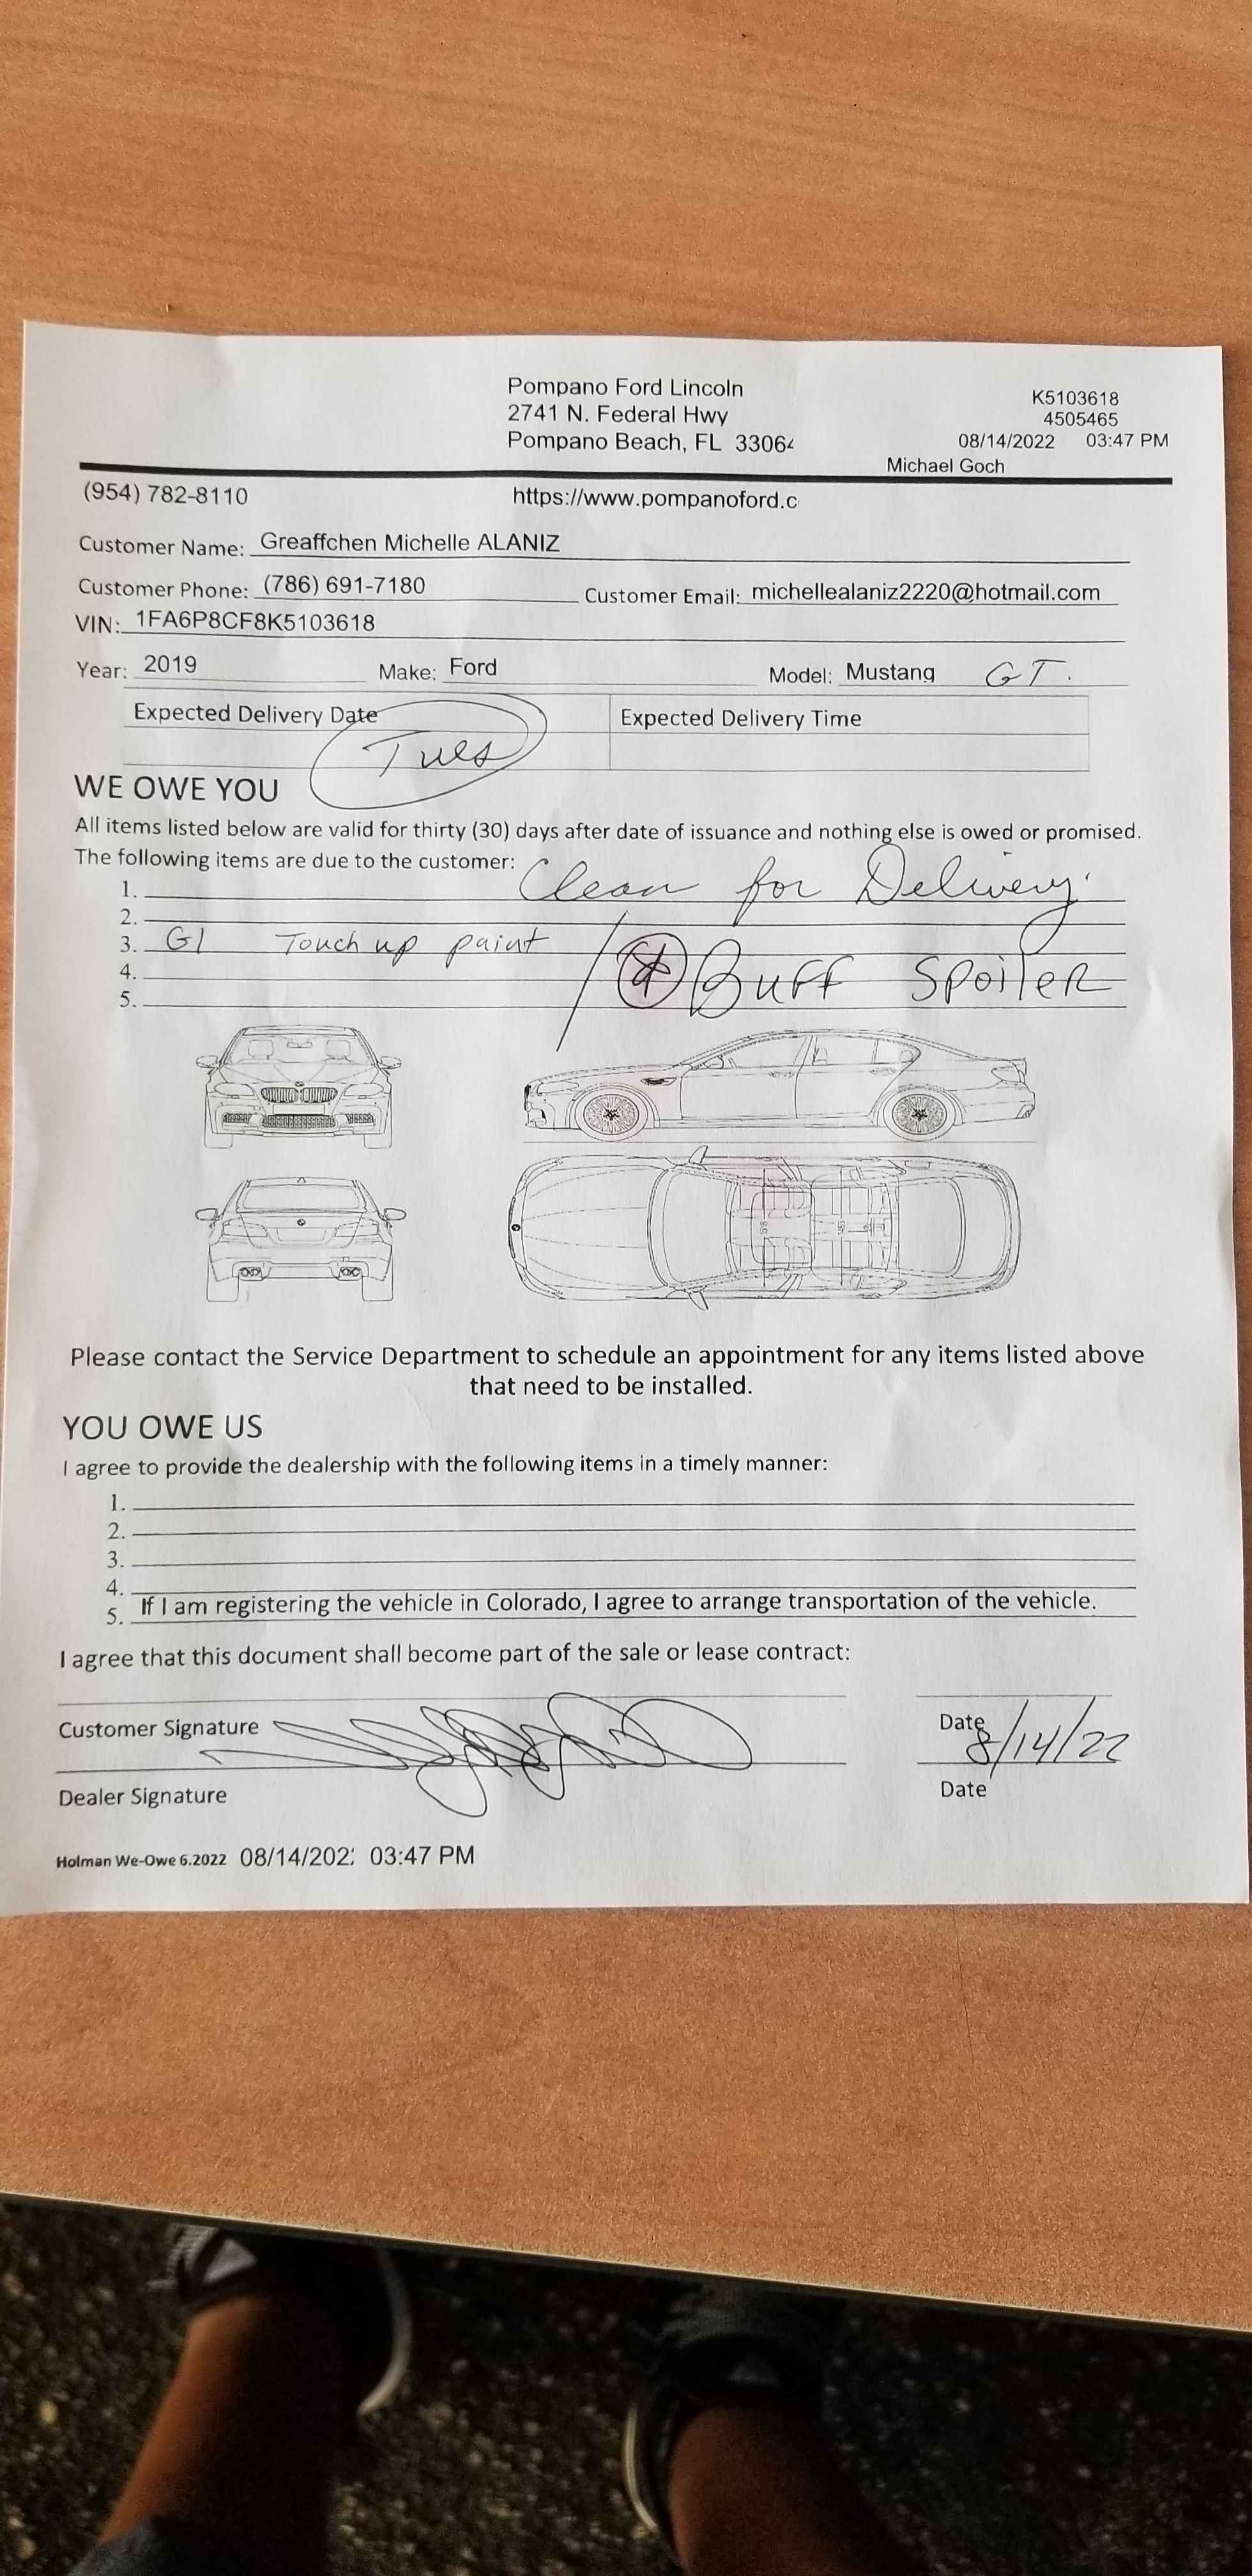 Pompano Ford Lincoln
2741 N. Federal Hwy
Pompano Beach, FL 33064
K5103618
4505465
08/14/2022 03:47 PM
Michael Goch
(954) 782-8110 https://www.pompanoford.c
Customer Name: Greaffchen Michelle ALANIZ
Customer Phone: (786) 691-7180 Customer Email: michellealaniz2220@hotmail.com
VIN: 1FA6P8CF8K5103618
Year: 2019 Make: Ford Model: Mustang GT.
Expected Delivery Date Expected Delivery Time
Tues
WE OWE YOU
All items listed below are valid for thirty (30) days after date of issuance and nothing else is owed or promised.
The following items are due to the customer: Clean for Delivery.
1.
2.
3. G1 Touch up paint
4. Buff Spoiler
5.
Please contact the Service Department to schedule an appointment for any items listed above
that need to be installed.
YOU OWE US
I agree to provide the dealership with the following items in a timely manner:
1.
2.
3.
4.
5. If I am registering the vehicle in Colorado, I agree to arrange transportation of the vehicle.
I agree that this document shall become part of the sale or lease contract:
Customer Signature Date
8/14/22
Dealer Signature Date
Holman We-Owe 6.2022 08/14/202 03:47 PM